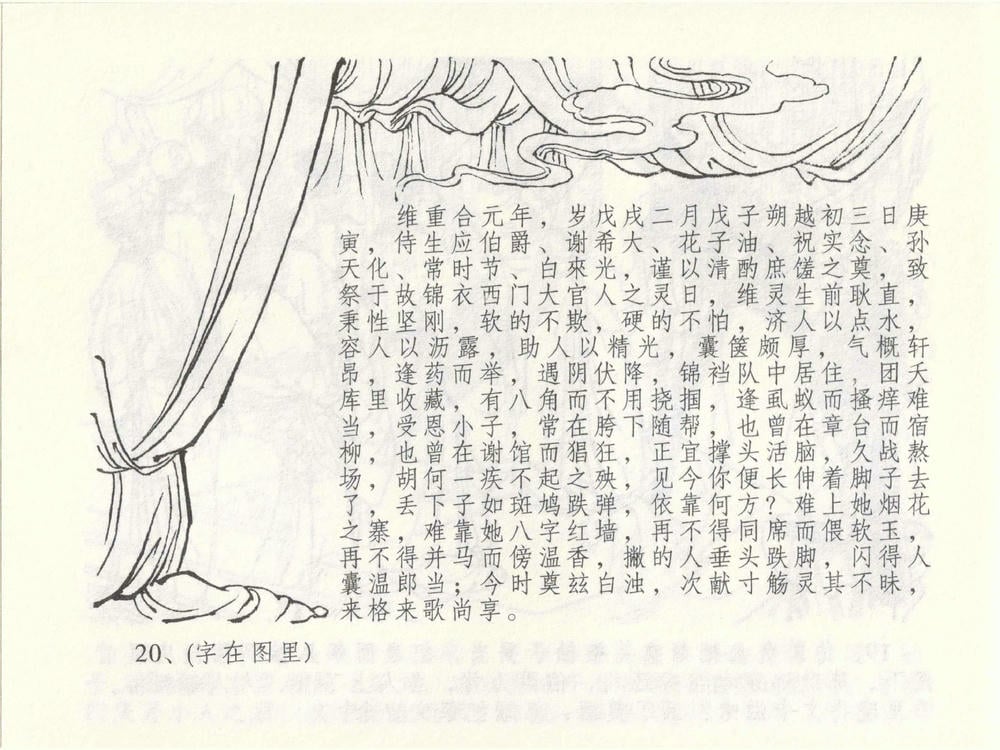 维重合元年，岁戊戌二月戊子朔越初三日庚
寅，侍生应伯爵、谢希大、花子油、祝实念、孙
天化、常时节、白來光，谨以清酌庶馐之奠，致
祭于故锦衣西门大官人之灵日，维灵生前耿直，
秉性坚刚，软的不欺，硬的不怕，济人以点水，
容人以沥露，助人以精光，囊箧颇厚，气概轩
昂，逢药而举，遇阴伏降，锦裆队中居住，团天
库里收藏，有八角而不用挠掴，逢虱蚁而搔痒难
当，受恩小子，常在胯下随帮，也曾在章台而宿
柳，也曾在谢馆而猖狂，正宜撑头活脑，久战熬
场，胡何一疾不起之殃，见今你便长伸着脚子去
了，丢下子如斑鸠跌弹，依靠何方？难上她烟花
之寨，难靠她八字红墙，再不得同席而偎软玉，
再不得并马而傍温香，撇的人垂头跌脚，闪得人
囊温郎当；今时奠兹白浊，次献寸觞灵其不昧，
来格来歌尚享。
20、(字在图里)